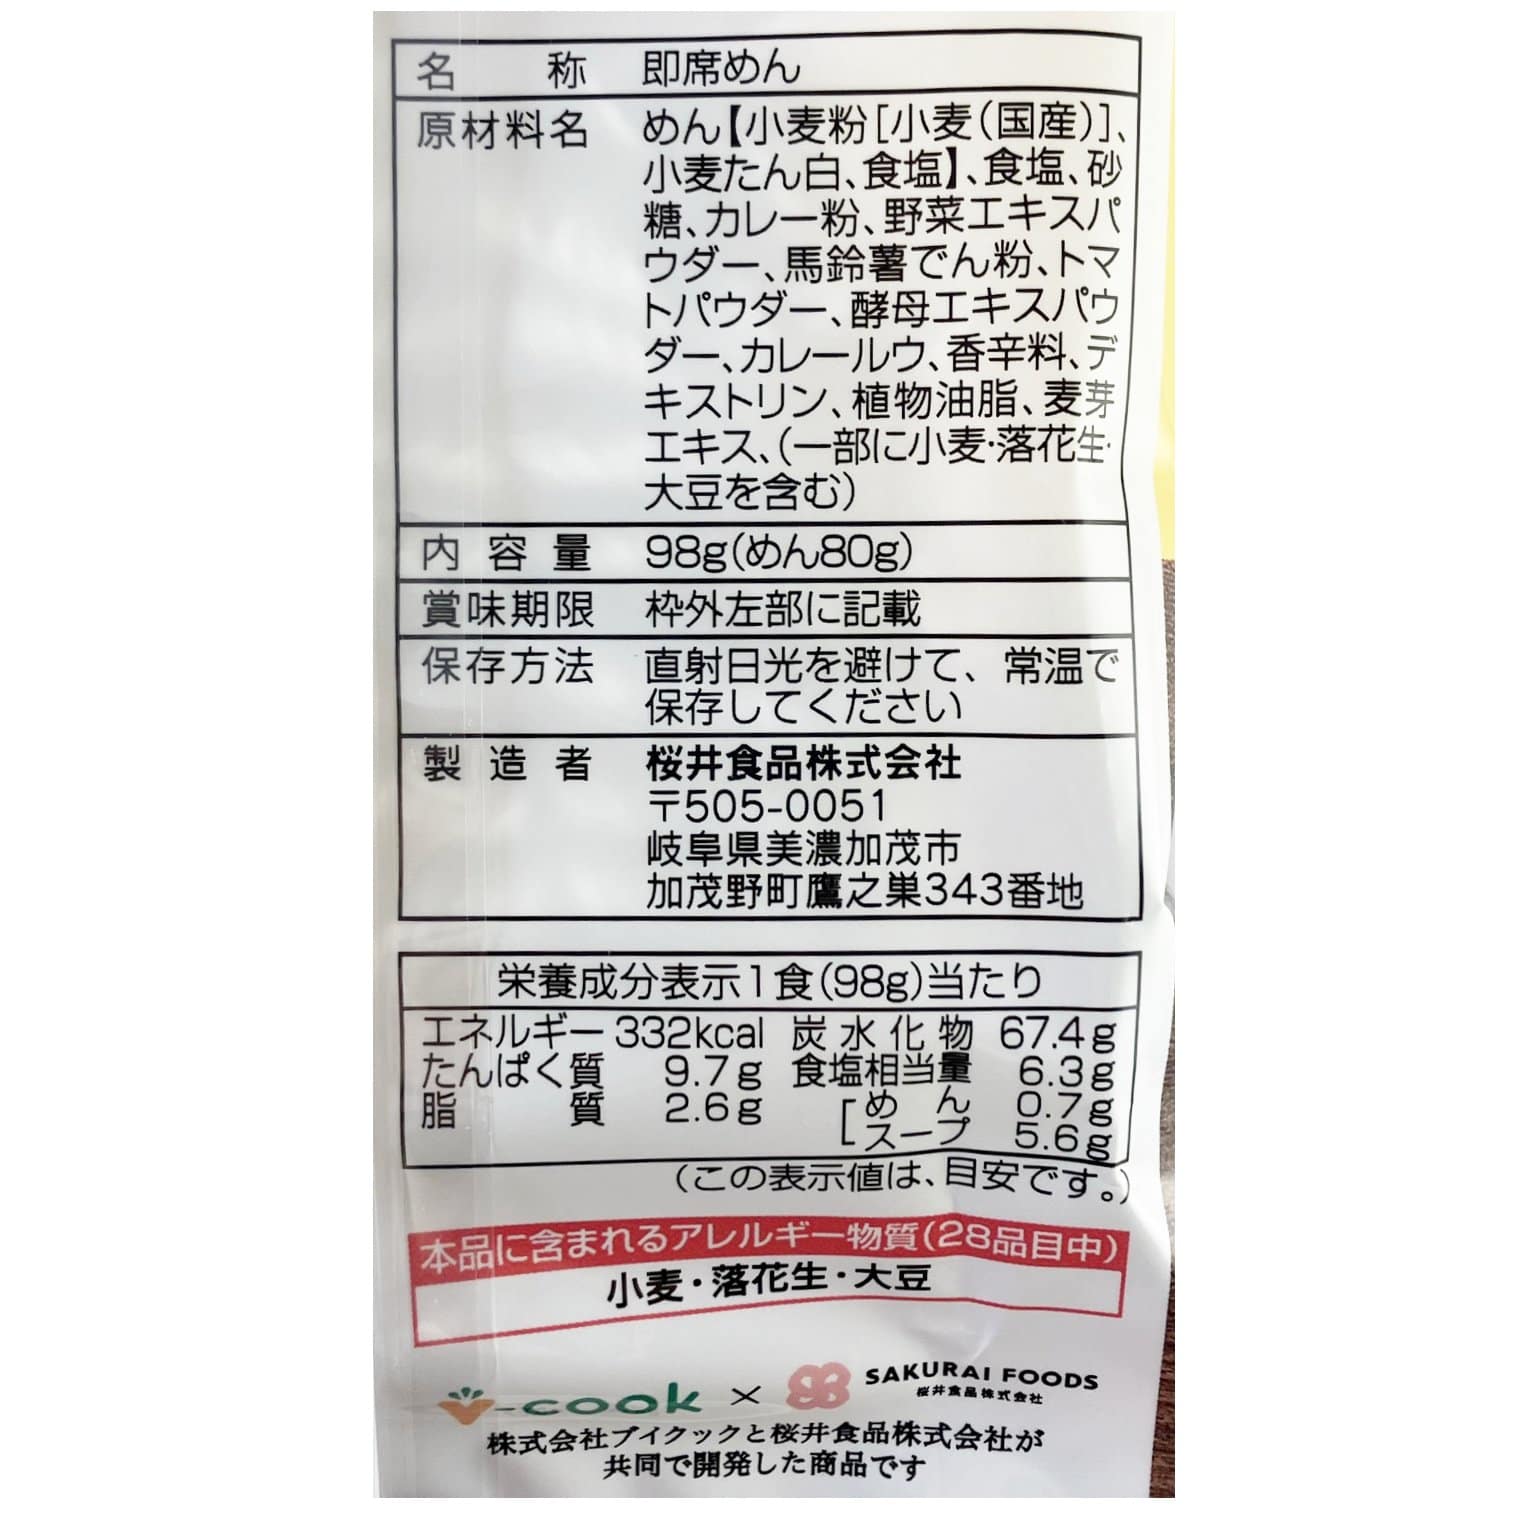 名称 即席めん
原材料名 めん【小麦粉[小麦(国産)]、
小麦たん白、食塩】、食塩、砂
糖、カレー粉、野菜エキスパ
ウダー、馬鈴薯でん粉、トマ
トパウダー、酵母エキスパウ
ダー、カレールウ、香辛料、デ
キストリン、植物油脂、麦芽
エキス、(一部に小麦・落花生・
大豆を含む)
内容量 98g(めん80g)
賞味期限 枠外左部に記載
保存方法 直射日光を避けて、常温で
保存してください
製造者 桜井食品株式会社
〒505-0051
岐阜県美濃加茂市
加茂野町鷹之巣343番地
栄養成分表示1食(98g)当たり
エネルギー 332kcal 炭水化物 67.4g
たんぱく質 9.7g 食塩相当量 6.3g
脂質 2.6g [めん 0.7g
スープ 5.6g
(この表示値は、目安です。)
本品に含まれるアレルギー物質(28品目中)
小麦・落花生・大豆
v-cook × SAKURAI FOODS
桜井食品株式会社
株式会社ブイクックと桜井食品株式会社が
共同で開発した商品です